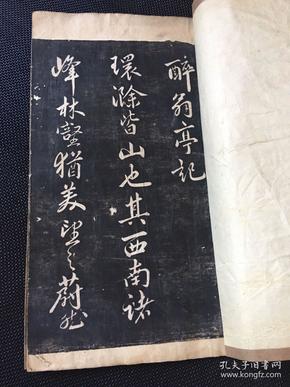 醉翁亭記
環滁皆山也其西南諸
峰林壑猶美望之蔚然
孔夫子旧书网